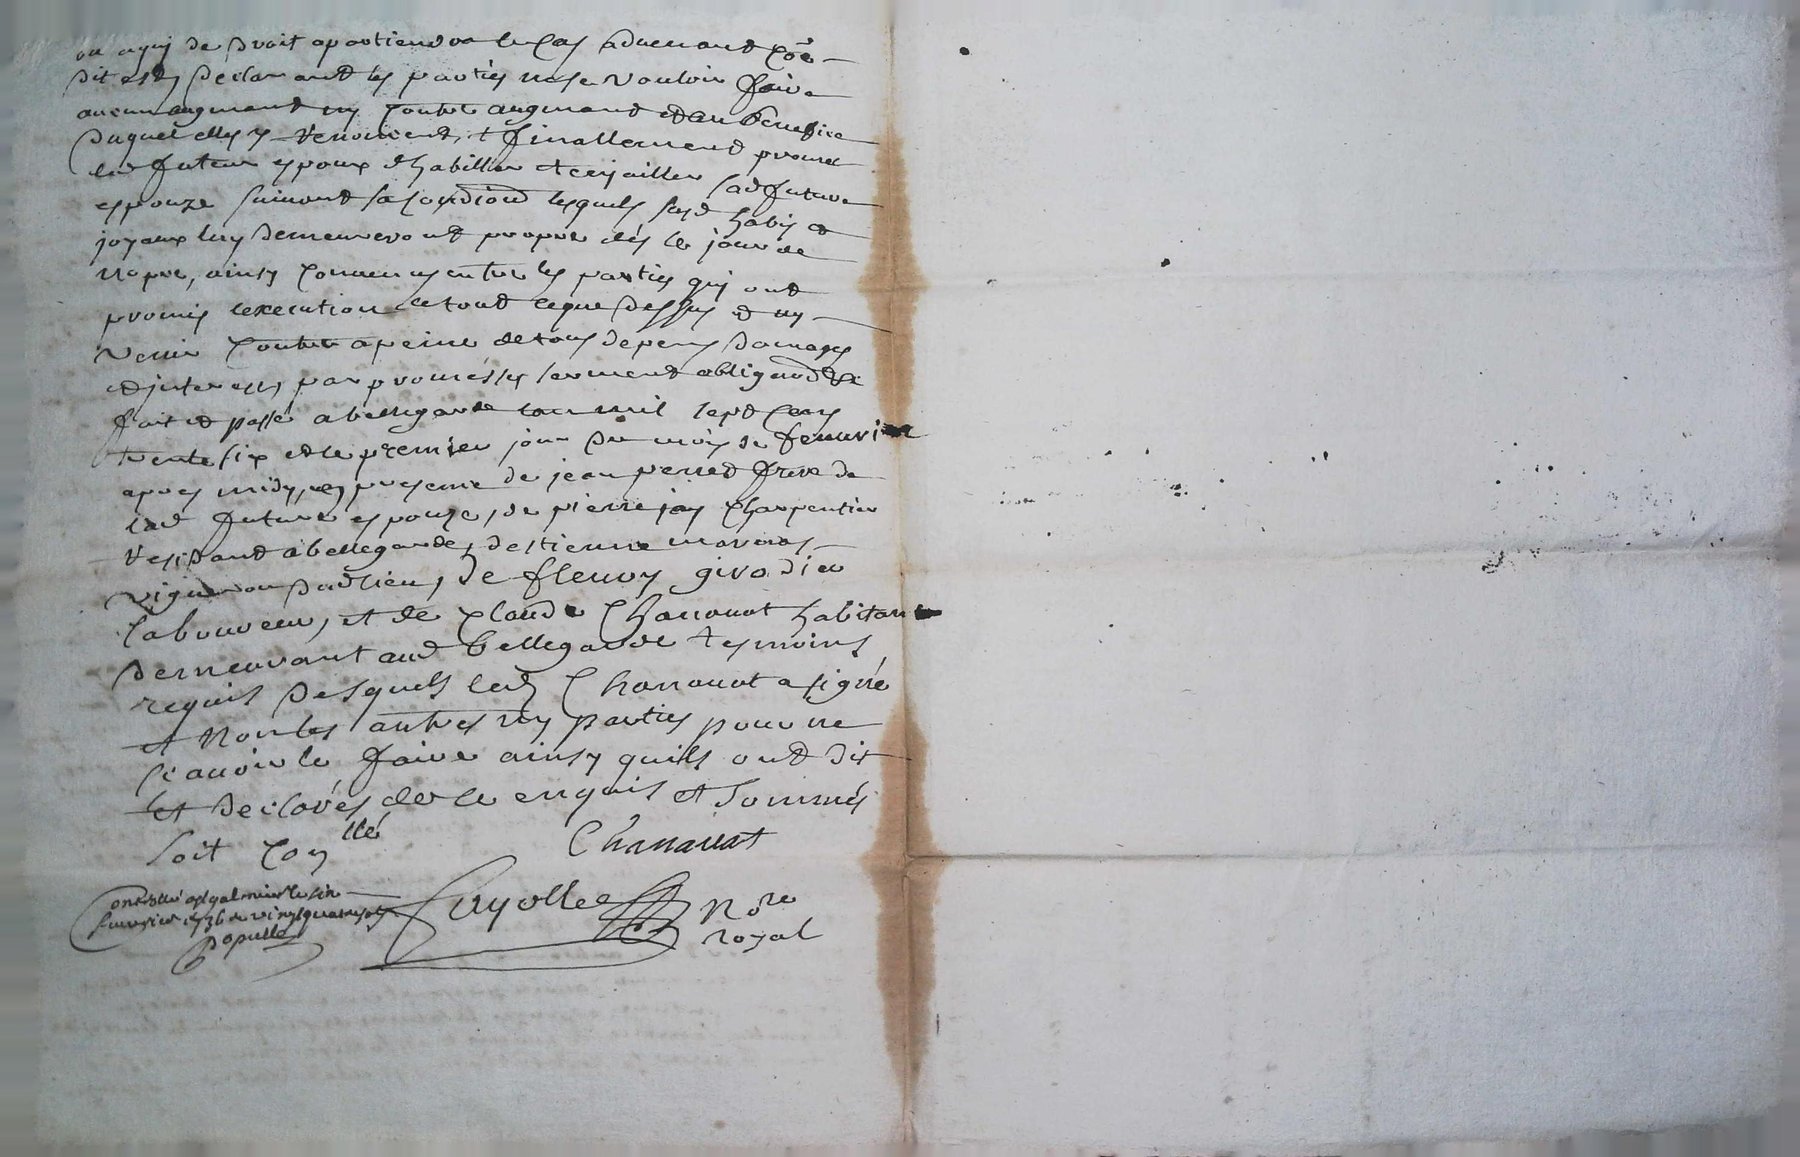 ou a quj de droit apartiendra le cas aduenant coe
dit est, déclarant les parties ne se vouloir faire
aucun augment ny contre augment et au benefice
duquel elles y renoncent, et finallement promet
led futeur epoux dhabiller et enjoailler lad future
epouze suiuant sa condiond lesquels susd habis et
joyaux luy demeureront propre dés le jour de
nopce, ainsy conuenus entre les parties quj ont
promis lexecution de tout ceque dessus et ny
venir contre a peine de tous depens domages
et jnterests, par promésses serment obligaond &
fait et passé a bellegarde lan mil sept cens
trente six et le premier jour du mois de feuurier
apres midy, en presence de jean perret frere de
lad future epouze, de pierre jay charpentier
residant a bellegarde, destienne
vigneron dud lieu, de fleury girodier
laboureur, et de claude Chanauat habitant
demeurant aud bellegarde tesmoins
requis desquels led Chanauat a signé
et non les autres ny parties pour ne
scauoir le faire ainsy quils ont dit
et declarés de ce enquis et sommés
soit con llé
Chanauat
Controllé a st galmier le six
feuurier 1736
Fayolle Nore
royal